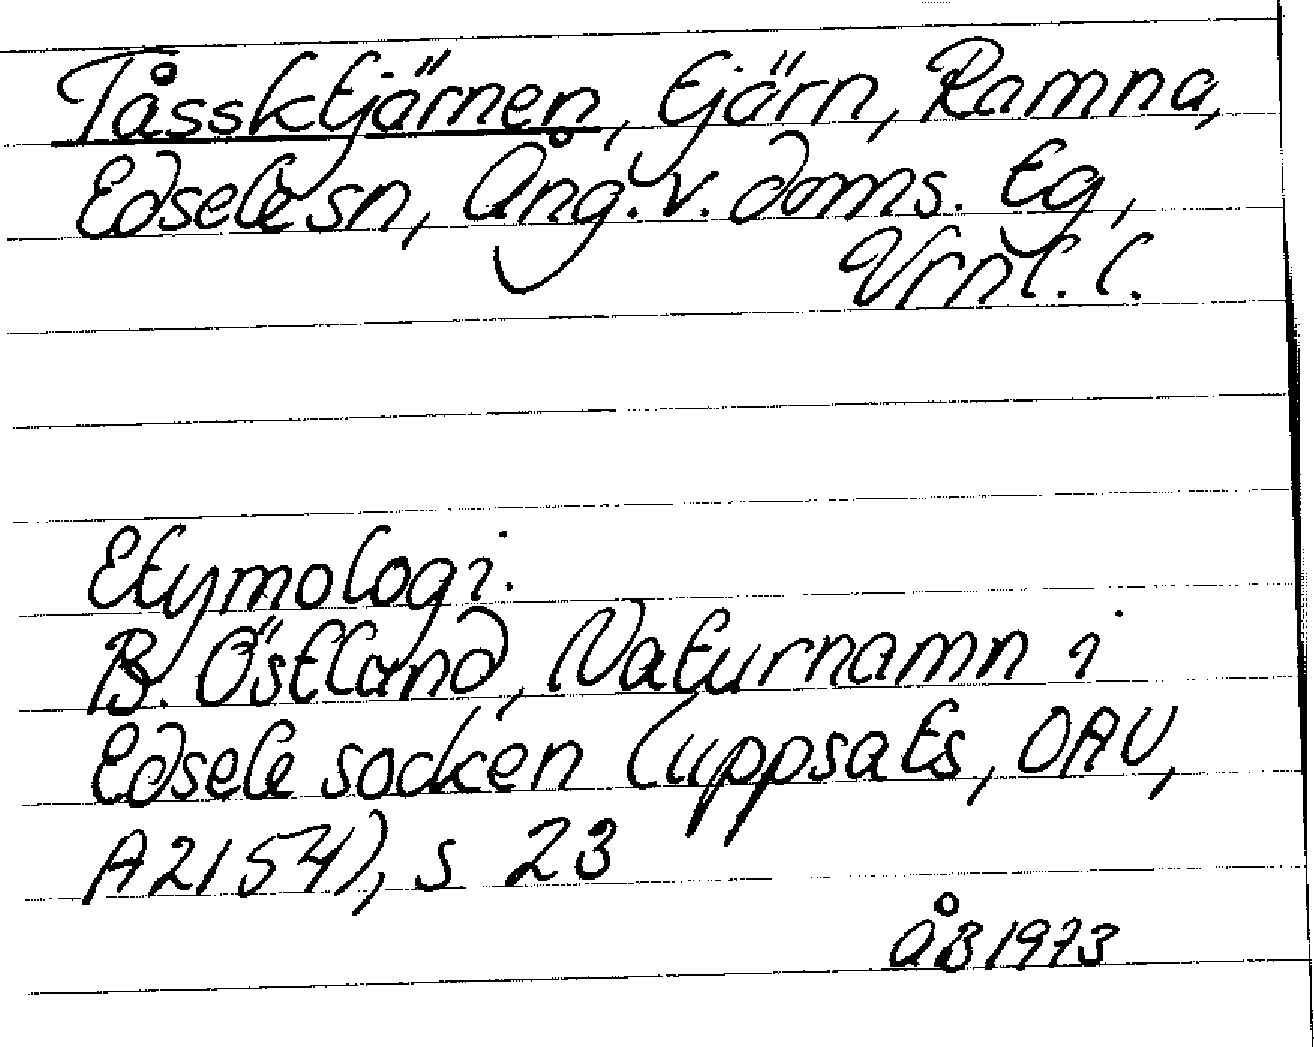 Tåssktjärnen, tjärn, Ramna,
Edsele sn, Ång. v. doms. tg,
Vrnl. l.
Etymologi:
B. Östland, Naturnamn i
Edsele socken (uppsats, OAU,
A2154), s 23
ÅB 1973